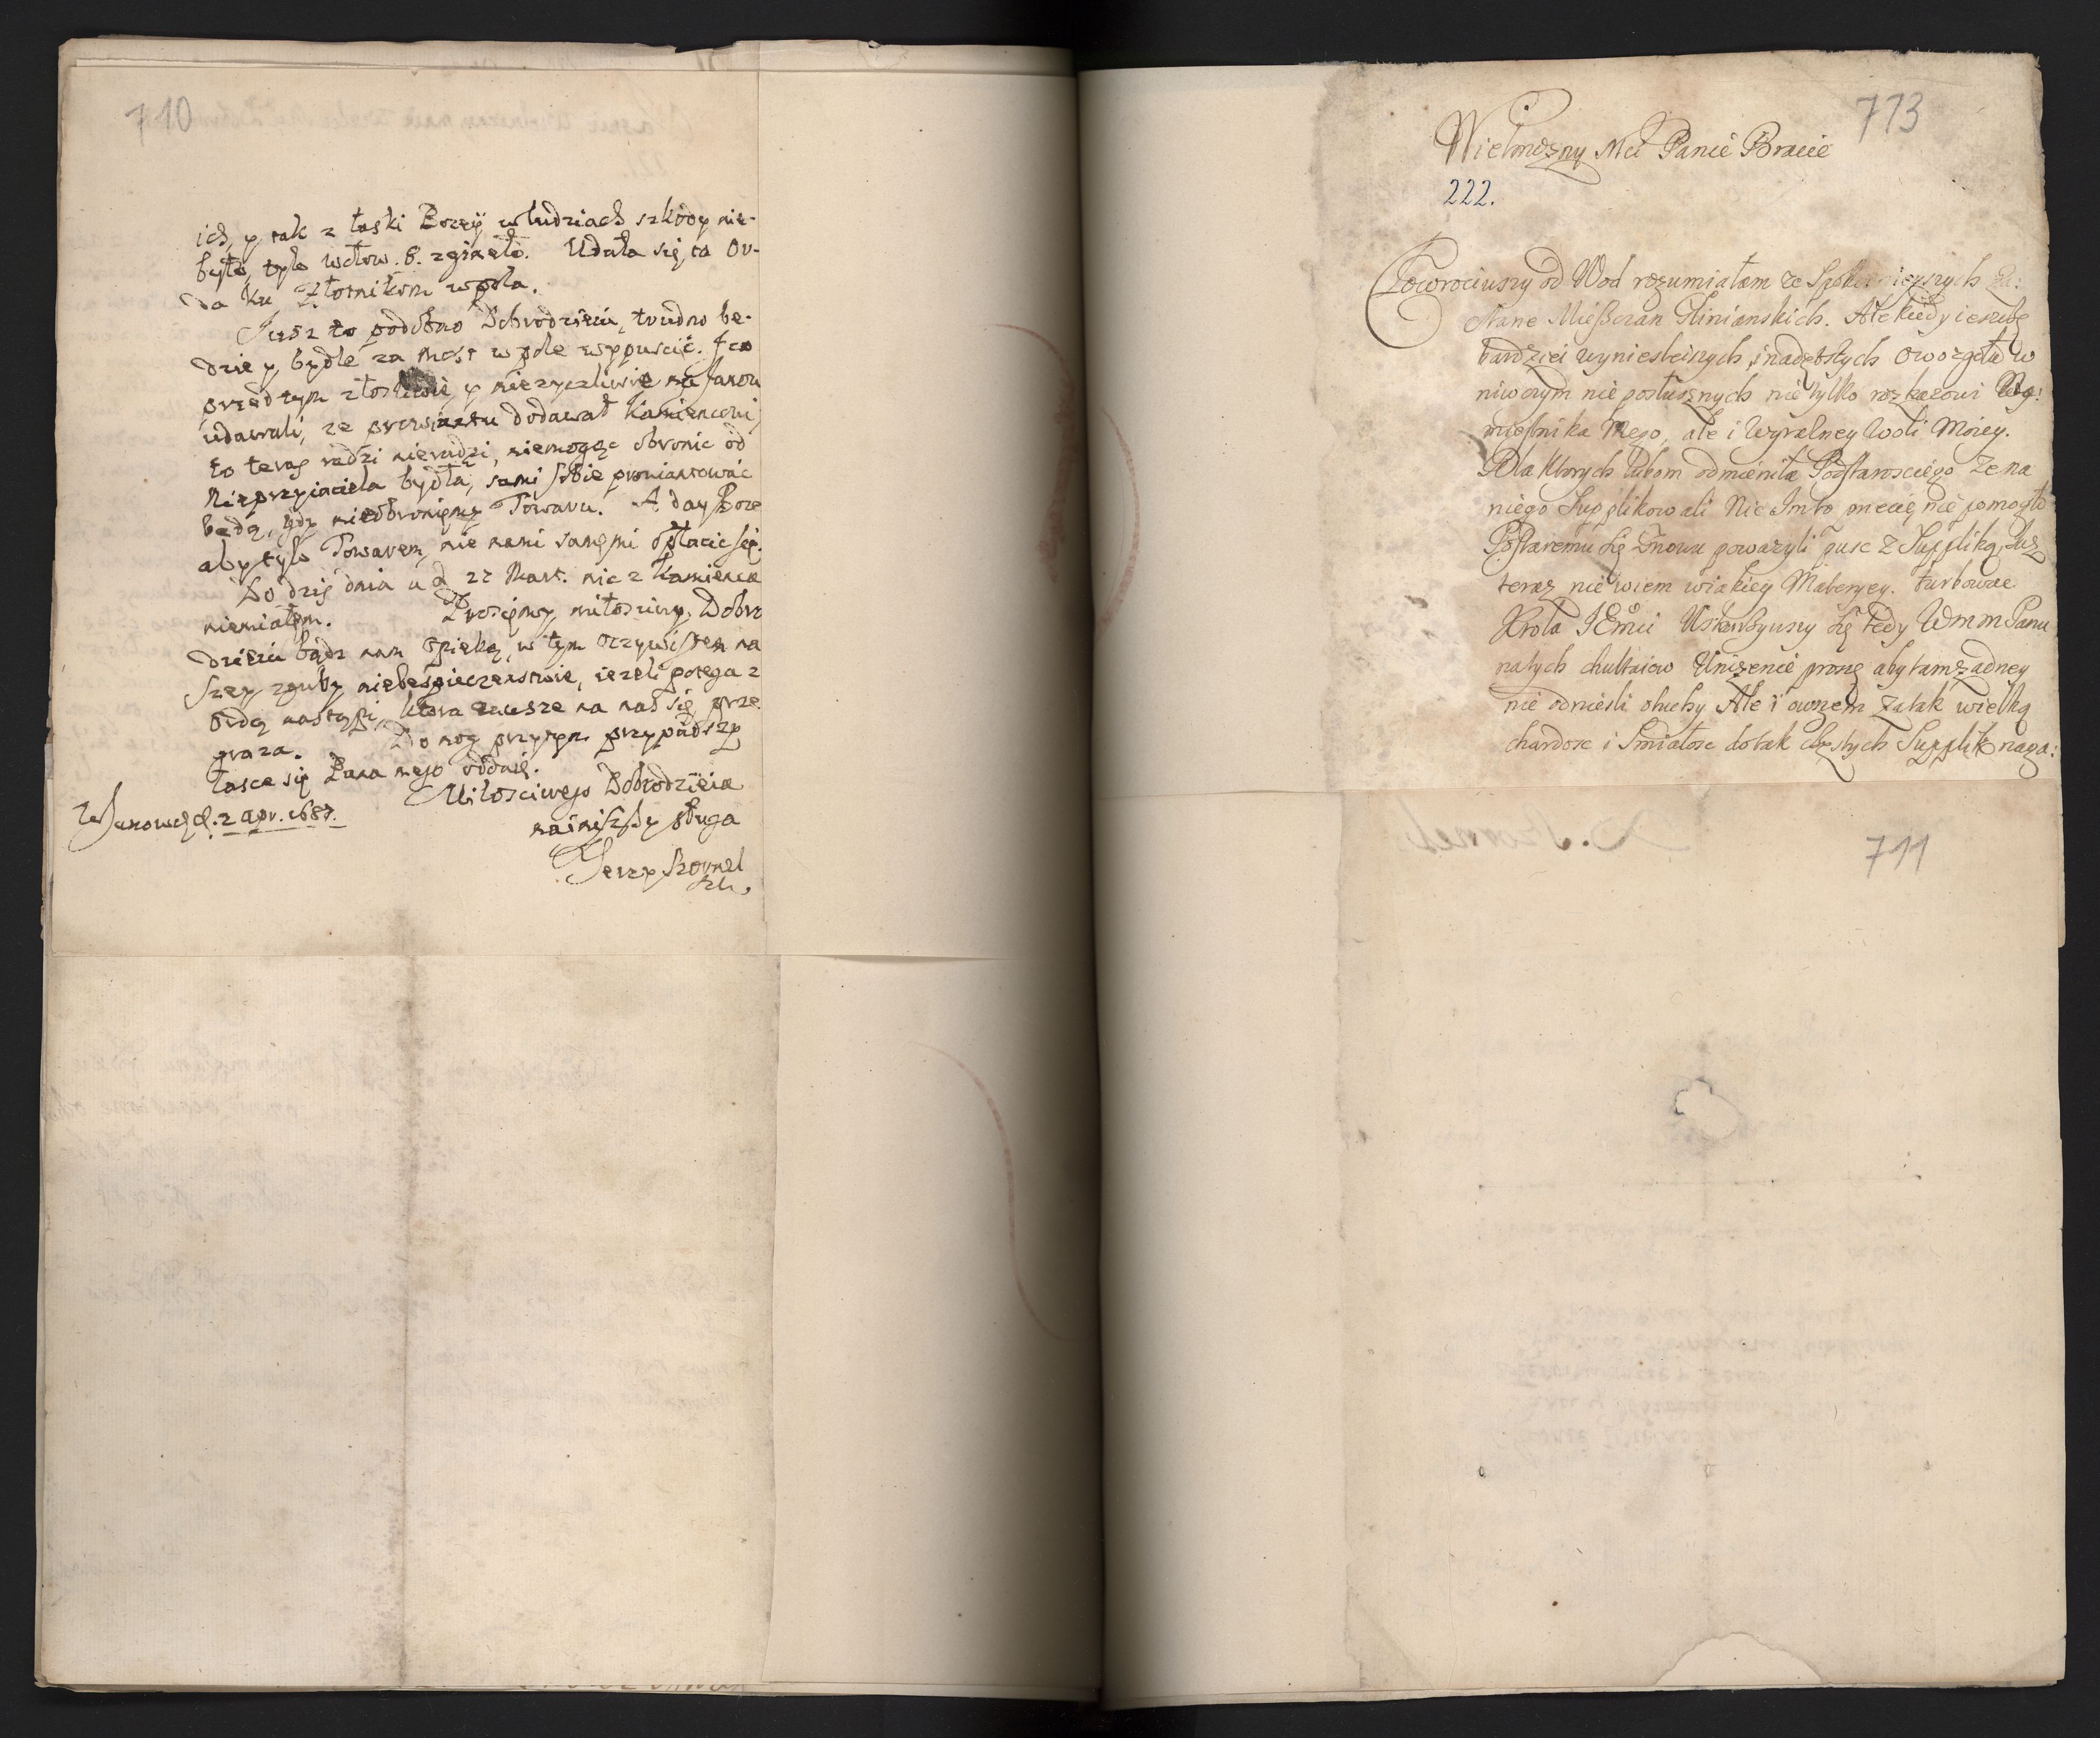 710
ich, y tak z łaski Bozey w ludziach szkody nie-
było, tylo wołow. 8. zginęło. Udała się ta Or-
da ku Złotnikom wpola.
Jusz to podobno Dobrodzieiu, trudno be-
dzie y bydłe za Most w pole wypuscić. I co
przed tym złosliwie y niezyczliwie na Janow
udawali, ze prowiantu dodawał Kamiencowi,
to teraz radzi nieradzi, niemogąc obronic od
Nieprzyiaciela bydła, sami sobie prowiantować
będą, gdy nieobroniemy Towaru. A day Boze
aby tylo Towarem, nie nami samymi opłacic się.
Do dziś dnia a d 22 Mart. nic z Kamienca
niemiałem. Prosiemy miłosciwy Dobro
dzieiu bądz nam opieką, w tym oczywistem na
szey zguby niebespieczenstwie, iezeli potega z
Ordą nastąpi, ktora zawsze na nas się prze
graza. Do nog przytym przypadszy
łasce się Pana mego oddaię.
Miłosciwego Dobrodzieia
Z Janowa d. 2 Apr. 1687. naśniszszy sługa
Jerzy Szornel
773
Wielmozny Mci Panie Bracie
222.
Powrociwszy od Wod rozumiałam ze Spokoinieyszych za:
stane Mieszczan Glinianskich. Ale kiedy ieszcze
bardziei wyniesleiszych, i nadętszych owo zgoła w
niwczym nie posłusznych nie tylko rozkazowi
miesnika Mego, ale i wyrazney Woli Moiey.
Dla ktorych lubom odmieniła Podstarosciego ze na
niego Supplikowali Nic Im to przecię nie pomogło
Postaremu się znowu powazyli pusc z Suppliką. Lusz
teraz nie wiem wiakiey Materyey. turbowac
Krola JEmci Uskarzywszy się tedy Wmm Panu
natych chultaiow Unizenie proszę aby tam zadney
nie odniesli otuchy Ale i owszem zatak wielką
chardosc i Smiałosc dotak częstych Supplik naga:
711